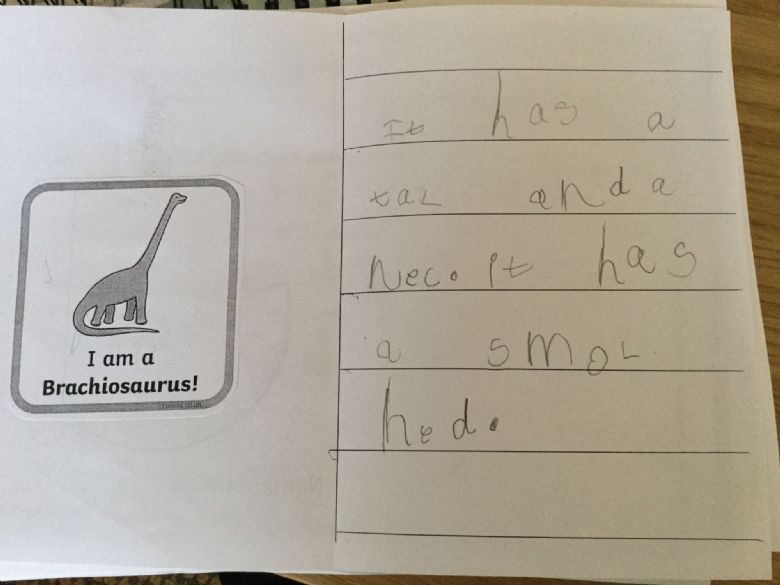 I am a
Brachiosaurus!
It has a
taL and a
Nec. It has
a smoL
hed.